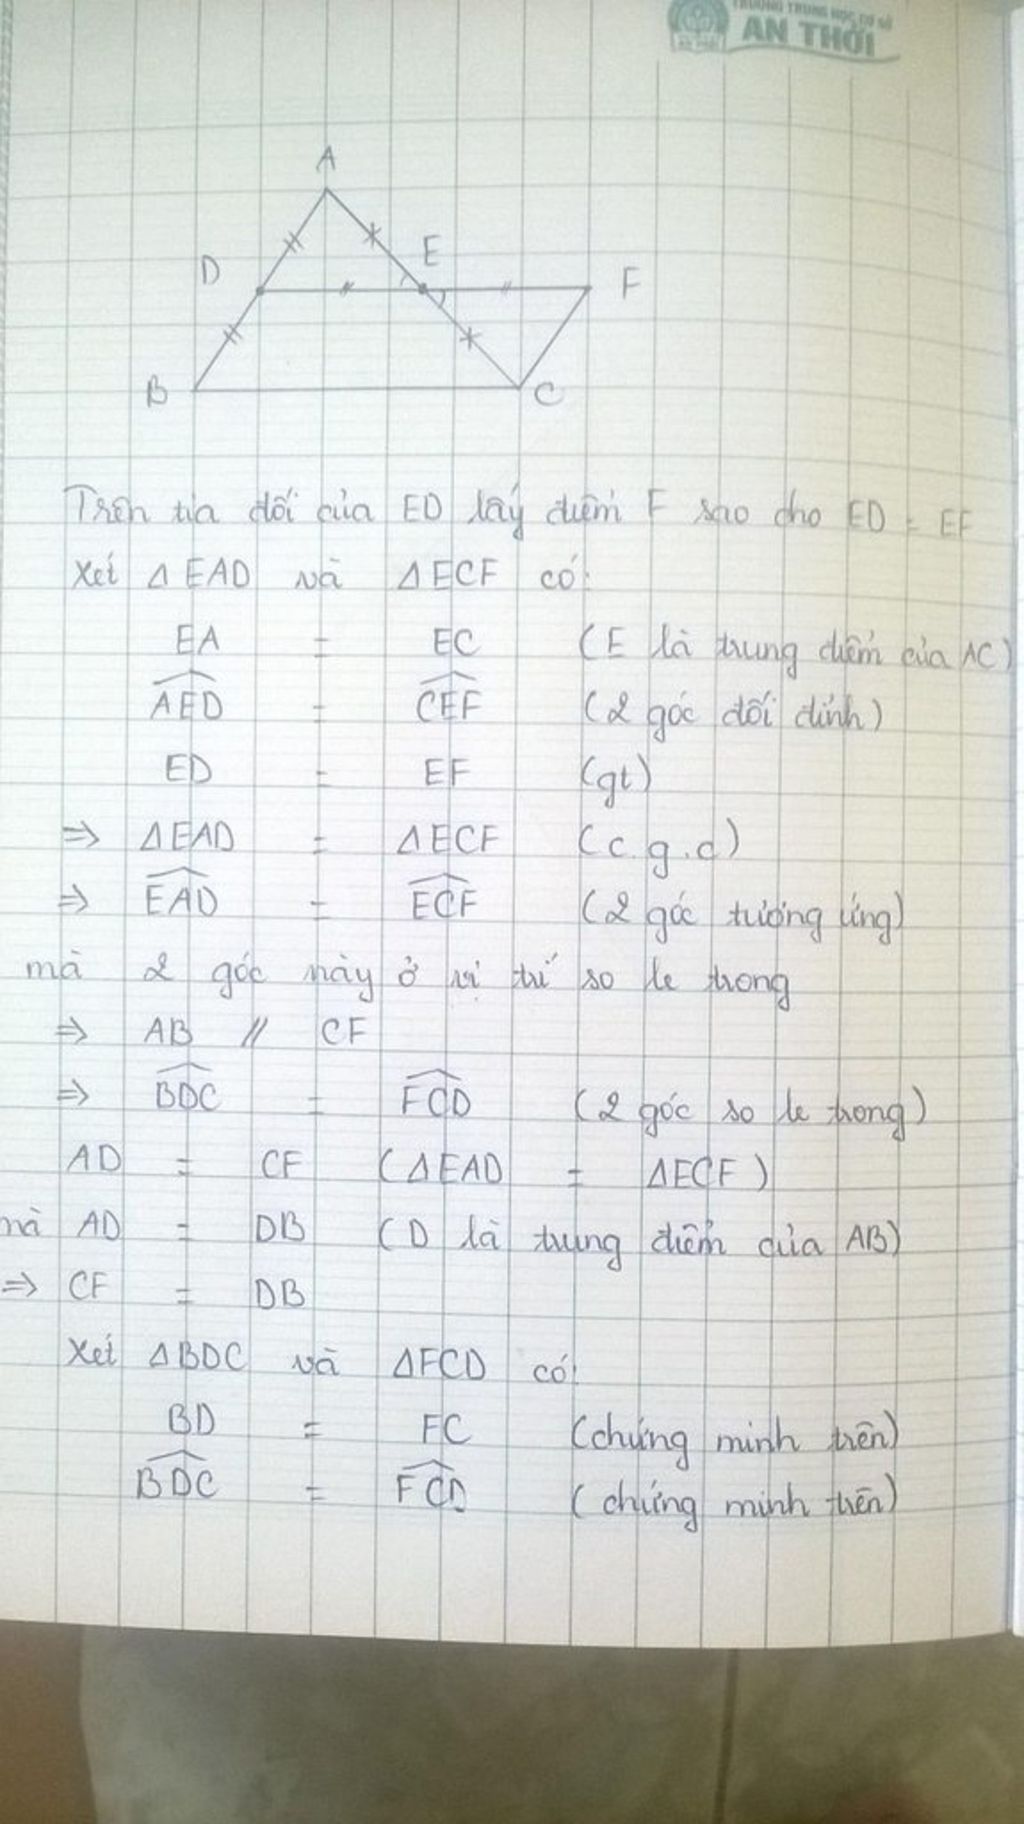 TRƯỜNG TRUNG HỌC CƠ SỞ
AN THỚI
A
D
E
F
B
C
Trên tia đối của ED lấy điểm F sao cho ED = EF
Xét Δ EAD và ΔECF có:
EA = EC (E là trung điểm của AC)
AED = CEF (2 góc đối đỉnh)
ED = EF (gt)
=> ΔEAD = ΔECF (c.g.c)
=> EAD = ECF (2 góc tương ứng)
mà 2 góc này ở vị trí so le trong
=> AB // CF
=> BDC = FCD (2 góc so le trong)
AD = CF (ΔEAD = ΔECF)
mà AD = DB (D là trung điểm của AB)
=> CF = DB
Xét ΔBDC và ΔFCD có:
BD = FC (chứng minh trên)
BDC = FCD (chứng minh trên)